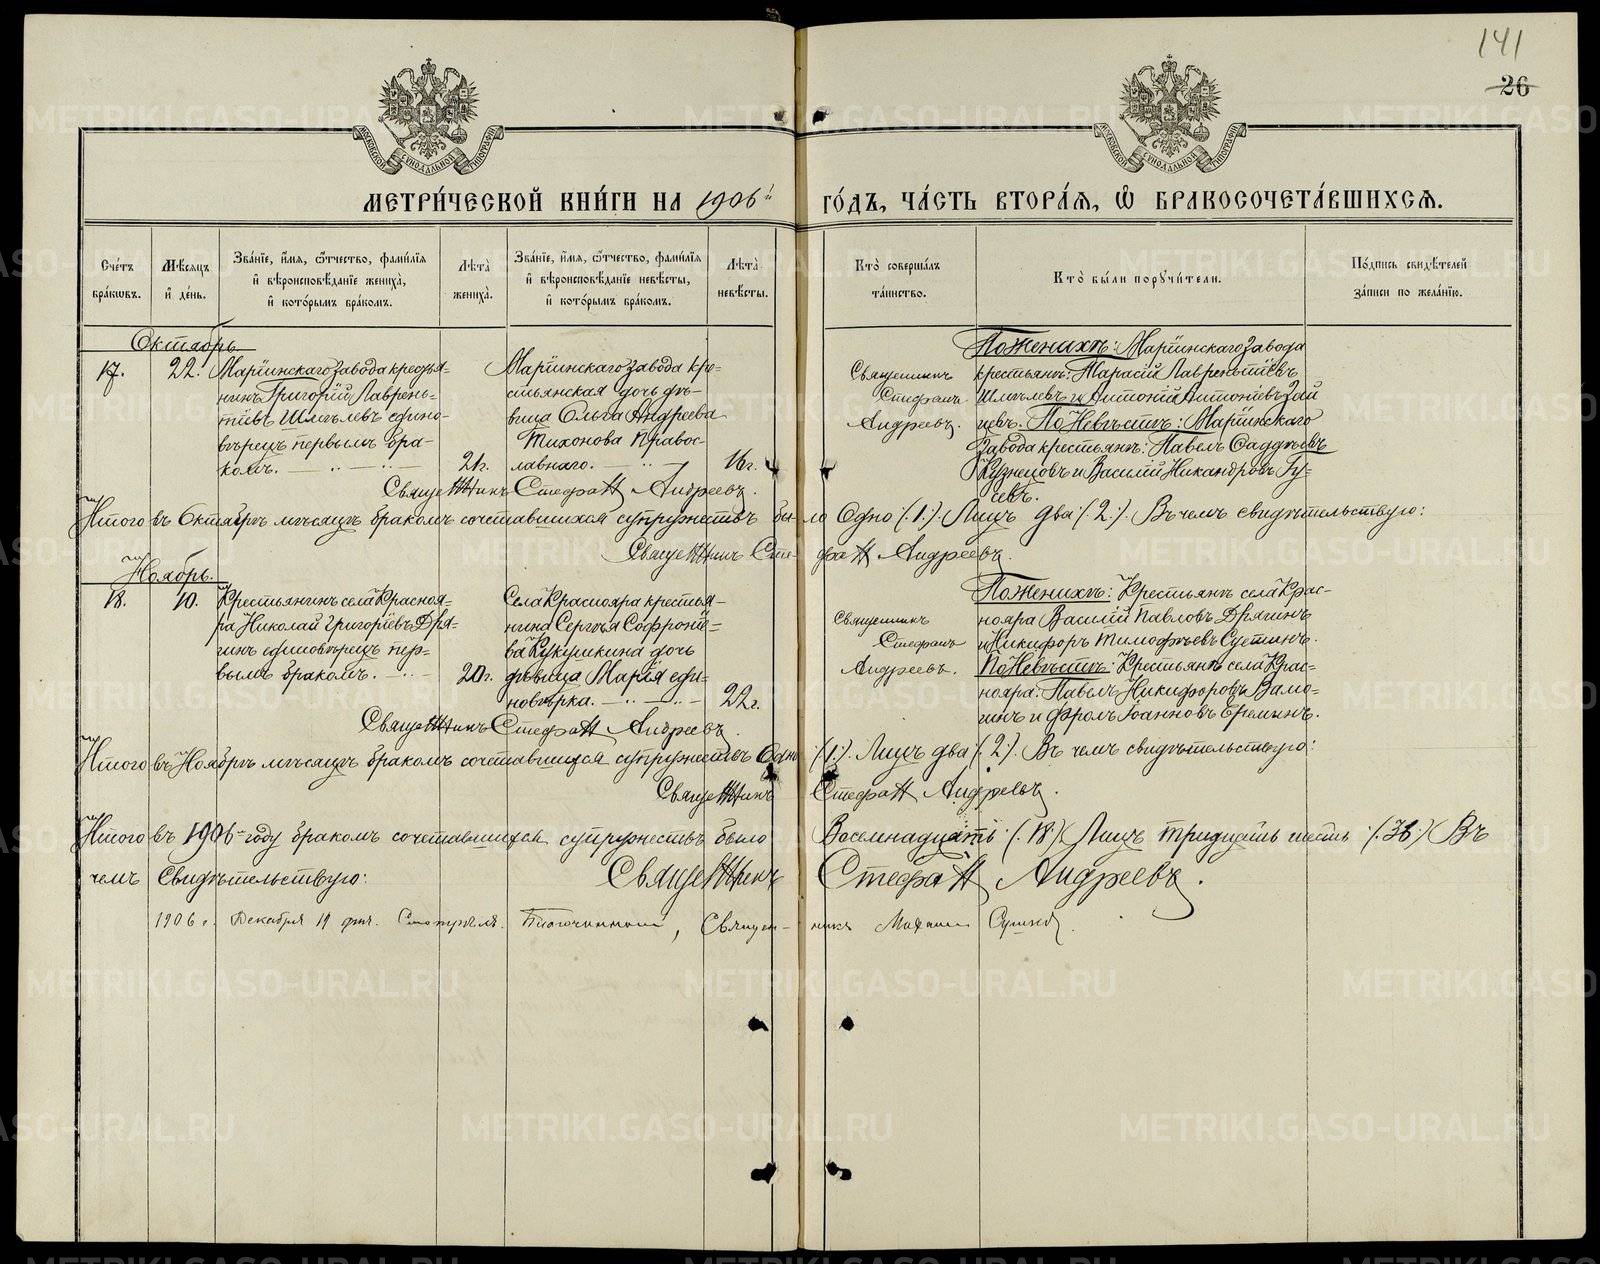 141
26
МОСКОВСКОЙ СѴНОДАЛЬНОЙ ТИПОГРАФІИ
МОСКОВСКОЙ СѴНОДАЛЬНОЙ ТИПОГРАФІИ
МЕТРИ́ЧЕСКОЙ КНИ́ГИ НА 1906й ГО́ДЪ, ЧА́СТЬ ВТОРА́Я, Ѡ БРАКОСОЧЕТА́ВШИХСЯ.
Сче́тъ бра́кѡвъ.
Мѣ́сяцъ и де́нь.
Зва́нїе, и́мя, ѻ́тчество, фами́лїя и вѣроисповѣ́данїе жениха̀, и кото́рымъ бра́комъ.
Лѣ́та̀ жениха̀.
Зва́нїе, и́мя, ѻ́тчество, фами́лїя и вѣроисповѣ́данїе невѣ́сты, и кото́рымъ бра́комъ.
Лѣ́та̀ невѣ́сты.
Кто̀ соверша́лъ та́инство.
Кто̀ бы́ли порꙋчи́тели.
По́дпись свидѣ́телей за́писи по жела́нїю.
Октябрь
17.
22.
Маріинскаго завода крестья-
нинъ Григорій Лаврень-
тіевъ Шмелевъ едино-
вѣрецъ первымъ бра-
комъ.
21г.
Маріинскаго завода кре-
стьянская дочь дѣ-
вица Ольга Андреева
Тихонова Правос-
лавнаго.
16г.
Священникъ
Стефанъ
Андреевъ.
По женихѣ: Маріинскаго завода
крестьянѣ: Тарасій Лаврентіевъ
Шмелевъ и Антоній Антоніевъ Зай
цевъ. По Невѣстѣ: Маріинскаго
завода крестьянѣ: Павелъ Саддѣевъ
Кузнецовъ и Василій Никандровъ Гу-
севъ.
Священникъ Стефанъ Андреевъ.
Итого въ Октябрѣ мѣсяцѣ бракомъ сочетавшихся супружествъ бы-ло Одно (.1.). Лицъ два (.2.). Въ чемъ свидѣтельствую:
Священникъ Сте-фанъ Андреевъ.
Ноябрь.
18.
10.
Крестьянинъ села Красноя-
ра Николай Григоріевъ Дря-
гинъ единовѣрецъ пер-
вымъ бракомъ.
20г.
Села Краснояра крестья-
нина Сергѣя Софроніе-
ва Кукушкина дочь
дѣвица Марія еди-
новѣрка.
22г.
Священникъ
Стефанъ
Андреевъ.
По женихѣ: Крестьянѣ села Крас-
нояра Василій Павловъ Дрягинъ
и Никифоръ Тимофѣевъ Суетинъ.
По Невѣстѣ: Крестьянѣ села Крас-
нояра: Павелъ Никифоровъ Вамо-
гинъ и Фролъ Іоанновъ Ереминъ.
Священникъ Стефанъ Андреевъ.
Итого въ Ноябрѣ мѣсяцѣ бракомъ сочетавшихся супружествъ Одно (.1.). Лицъ два (.2.). Въ чемъ свидѣтельствую:
Священникъ Стефанъ Андреевъ.
Итого въ 1906-году бракомъ сочетавшихся супружествъ было Восемнадцать (.18.) Лицъ тридцать шесть (.36.) Въ
чемъ Свидѣтельствую: Священникъ Стефанъ Андреевъ.
1906 г. Декабря 19 дня. Смотрѣлъ. Благочинный, Священ-никъ